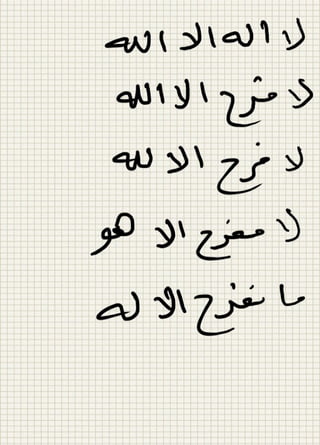 لا اله الا الله
لا مفرج الا الله
لا فرج الا لله
لا مفرج الا هو
ما تفرج الا له